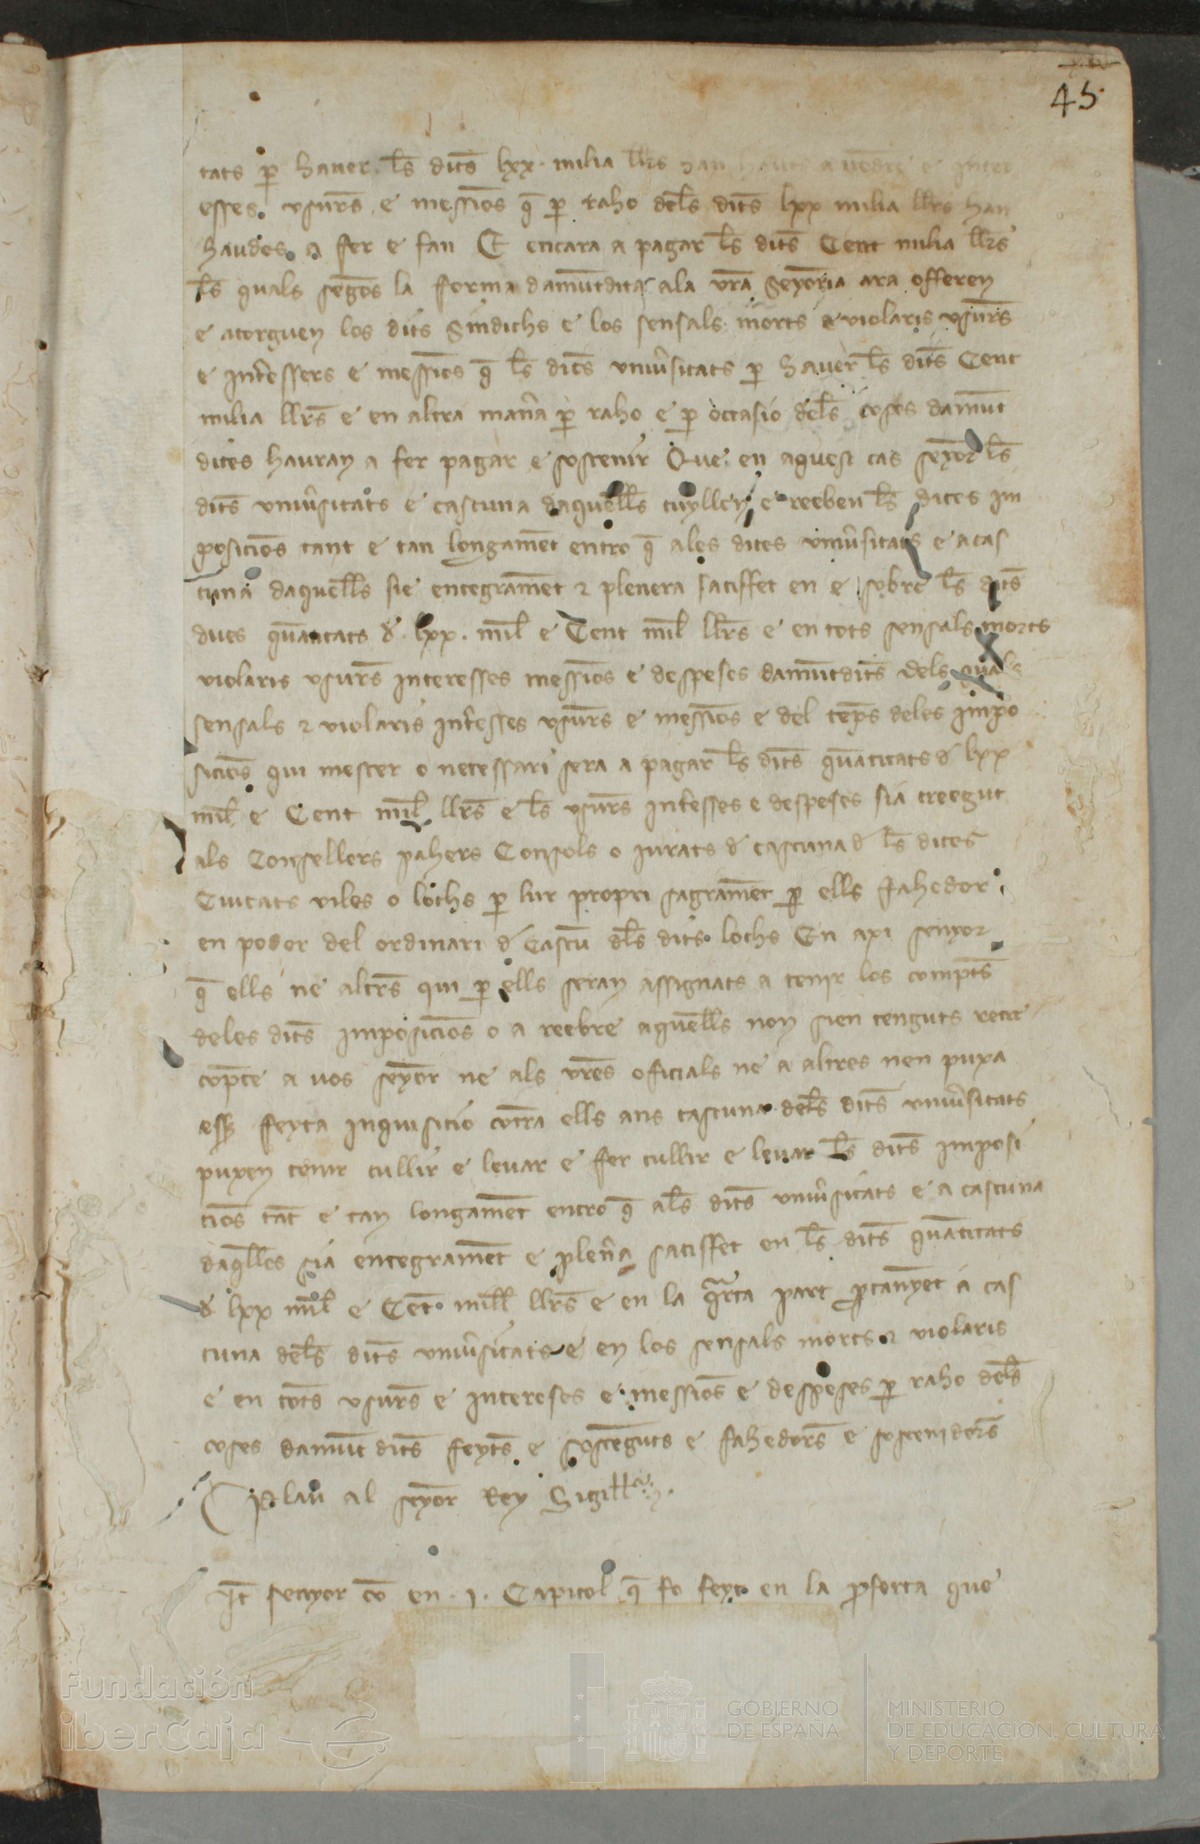 45
tats p̱ haver les dits lxx. milia llrs han hauts a vendre e inter
esses. usurs e messions q̄ p̱ raho dels dits lxx milia llrs han
haudes a fer e fan E encara a pagar ls dits Cent milia llrs
ls quals segons la forma damūtdita ala vr̄a Senyoria ara offeren
e atorguen los dits Sindichs e los sensals morts e violaris usurs
e int̄essers e messions q̄ ls dits univ̄sitats p̱ haver ls dits Cent
milia llrs e en altra man̄a p̱ raho e p̱ occasio dels coses damūt
dites hauran a fer pagar e sostenir Que en aquest cas seyor ls
dits univ̄sitats e cascuna daquells cuyllen e reeben ls dites im
posicions tant e tan longamēt entro q̄ ales dites univ̄sitats e a cas
cuna daquells sie entegramēt ⁊ plenera satisffet en e sobre ls dits
dues quātitats d. lxx. mil e Cent mil llrs e en tots sensals morts
violaris usurs interesses messions e despeses damūtdits dels quals
sensals ⁊ violaris int̄esses usurs e messions e del tēps deles impo
sicions qui mester o necessari sera a pagar ls dits quātitats d lxx
mil e Cent mil llrs e ls usurs int̄esses e despeses sia creegut
als Consellers pahers Consols o jurats d cascuna d ls dites
Ciutats viles o lochs p̱ lur propri sagramēt p̱ ells fahedor
en poder del ordinari d Cascū dls dits lochs En axi senyor
q̄ ells ne altrs qui p̱ ells seran assignats a tenir los compts
deles dits imposicions o a reebre aquells non sien tenguts retre
cōpte a vos seyor ne als vr̄es oficials ne a altres nen puxa
ess̄ feyta inquisicio cōtra ells ans cascuna dels dits univ̄sitats
puxen tenir cullir e levar e fer cullir e levar ls dits imposi
cions tāt e tan longamēt entro q̄ als dits univ̄sitats e a cascuna
daqlles sia entegramēt e plen̄a satisffet en ls dits quātitats
d lxx mil e Cēt mill llrs e en la q̄rta part p̱tanyēt a cas
cuna dels dits univ̄sitats e en los sensals morts ⁊ violaris
e en tots usurs e intereses e messions e despeses p̱ raho dels
coses damūt dits feyts e sostēguts e fahedors e sostenidors
Plau al seyor Rey
Itē senyor cō en .j. Capitol q̄ fo feyt en la p̱ferta que
Fundación
iberCaja
GOBIERNO
DE ESPAÑA
MINISTERIO
DE EDUCACIÓN, CULTURA
Y DEPORTE